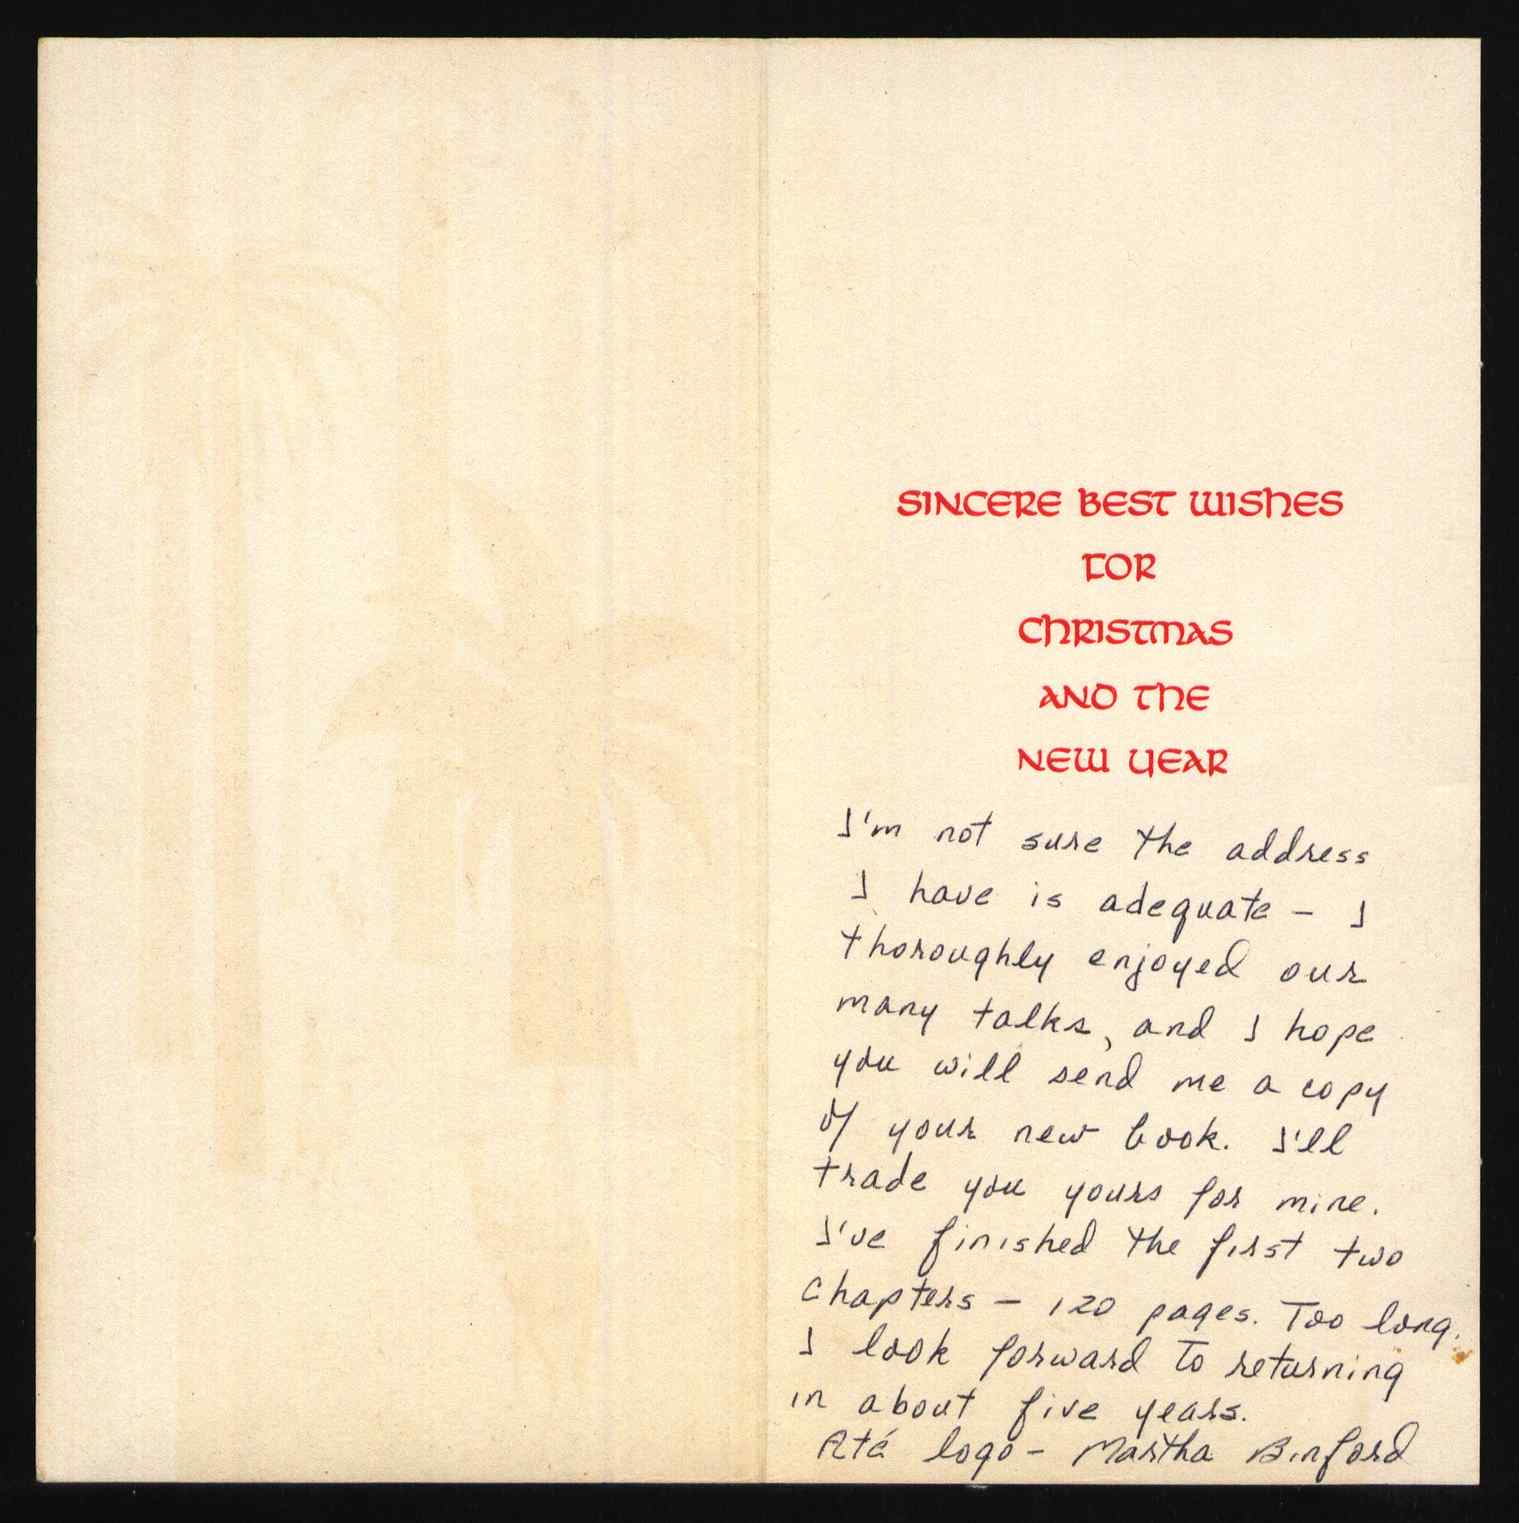 SINCERE BEST WISHES
FOR
CHRISTMAS
AND THE
NEW YEAR
I'm not sure the address
I have is adequate – I
thoroughly enjoyed our
many talks, and I hope
you will send me a copy
of your new book. I'll
trade you yours for mine.
I've finished the first two
chapters – 120 pages. Too long.
I look forward to returning
in about five years.
Até logo – Martha Binford